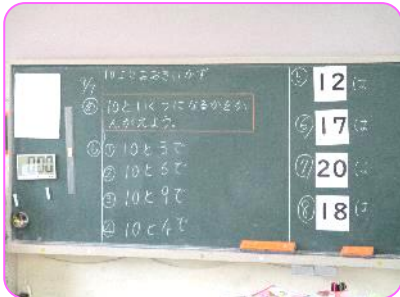 9/9
10よりおおきいかず
め 10といくつになるかをか
んがえよう。
① 10と3で
② 10と6で
③ 10と9で
④ 10と4で
⑤ 12は
⑥ 17は
⑦ 20は
⑧ 18は